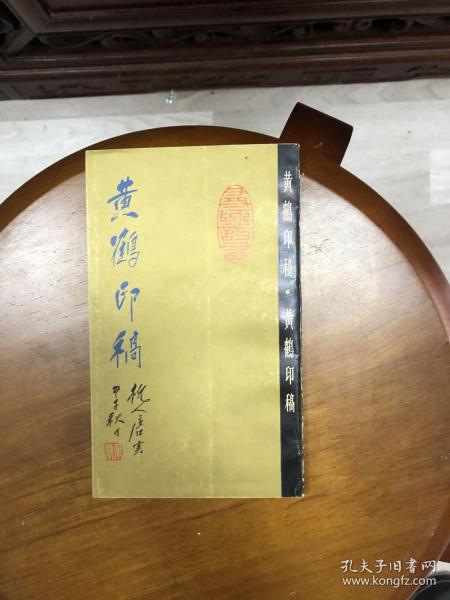 黄鹤印稿
甲子秋月
黄鹤印稿·黄鹤印稿
孔夫子旧书网
www.kongfz.com